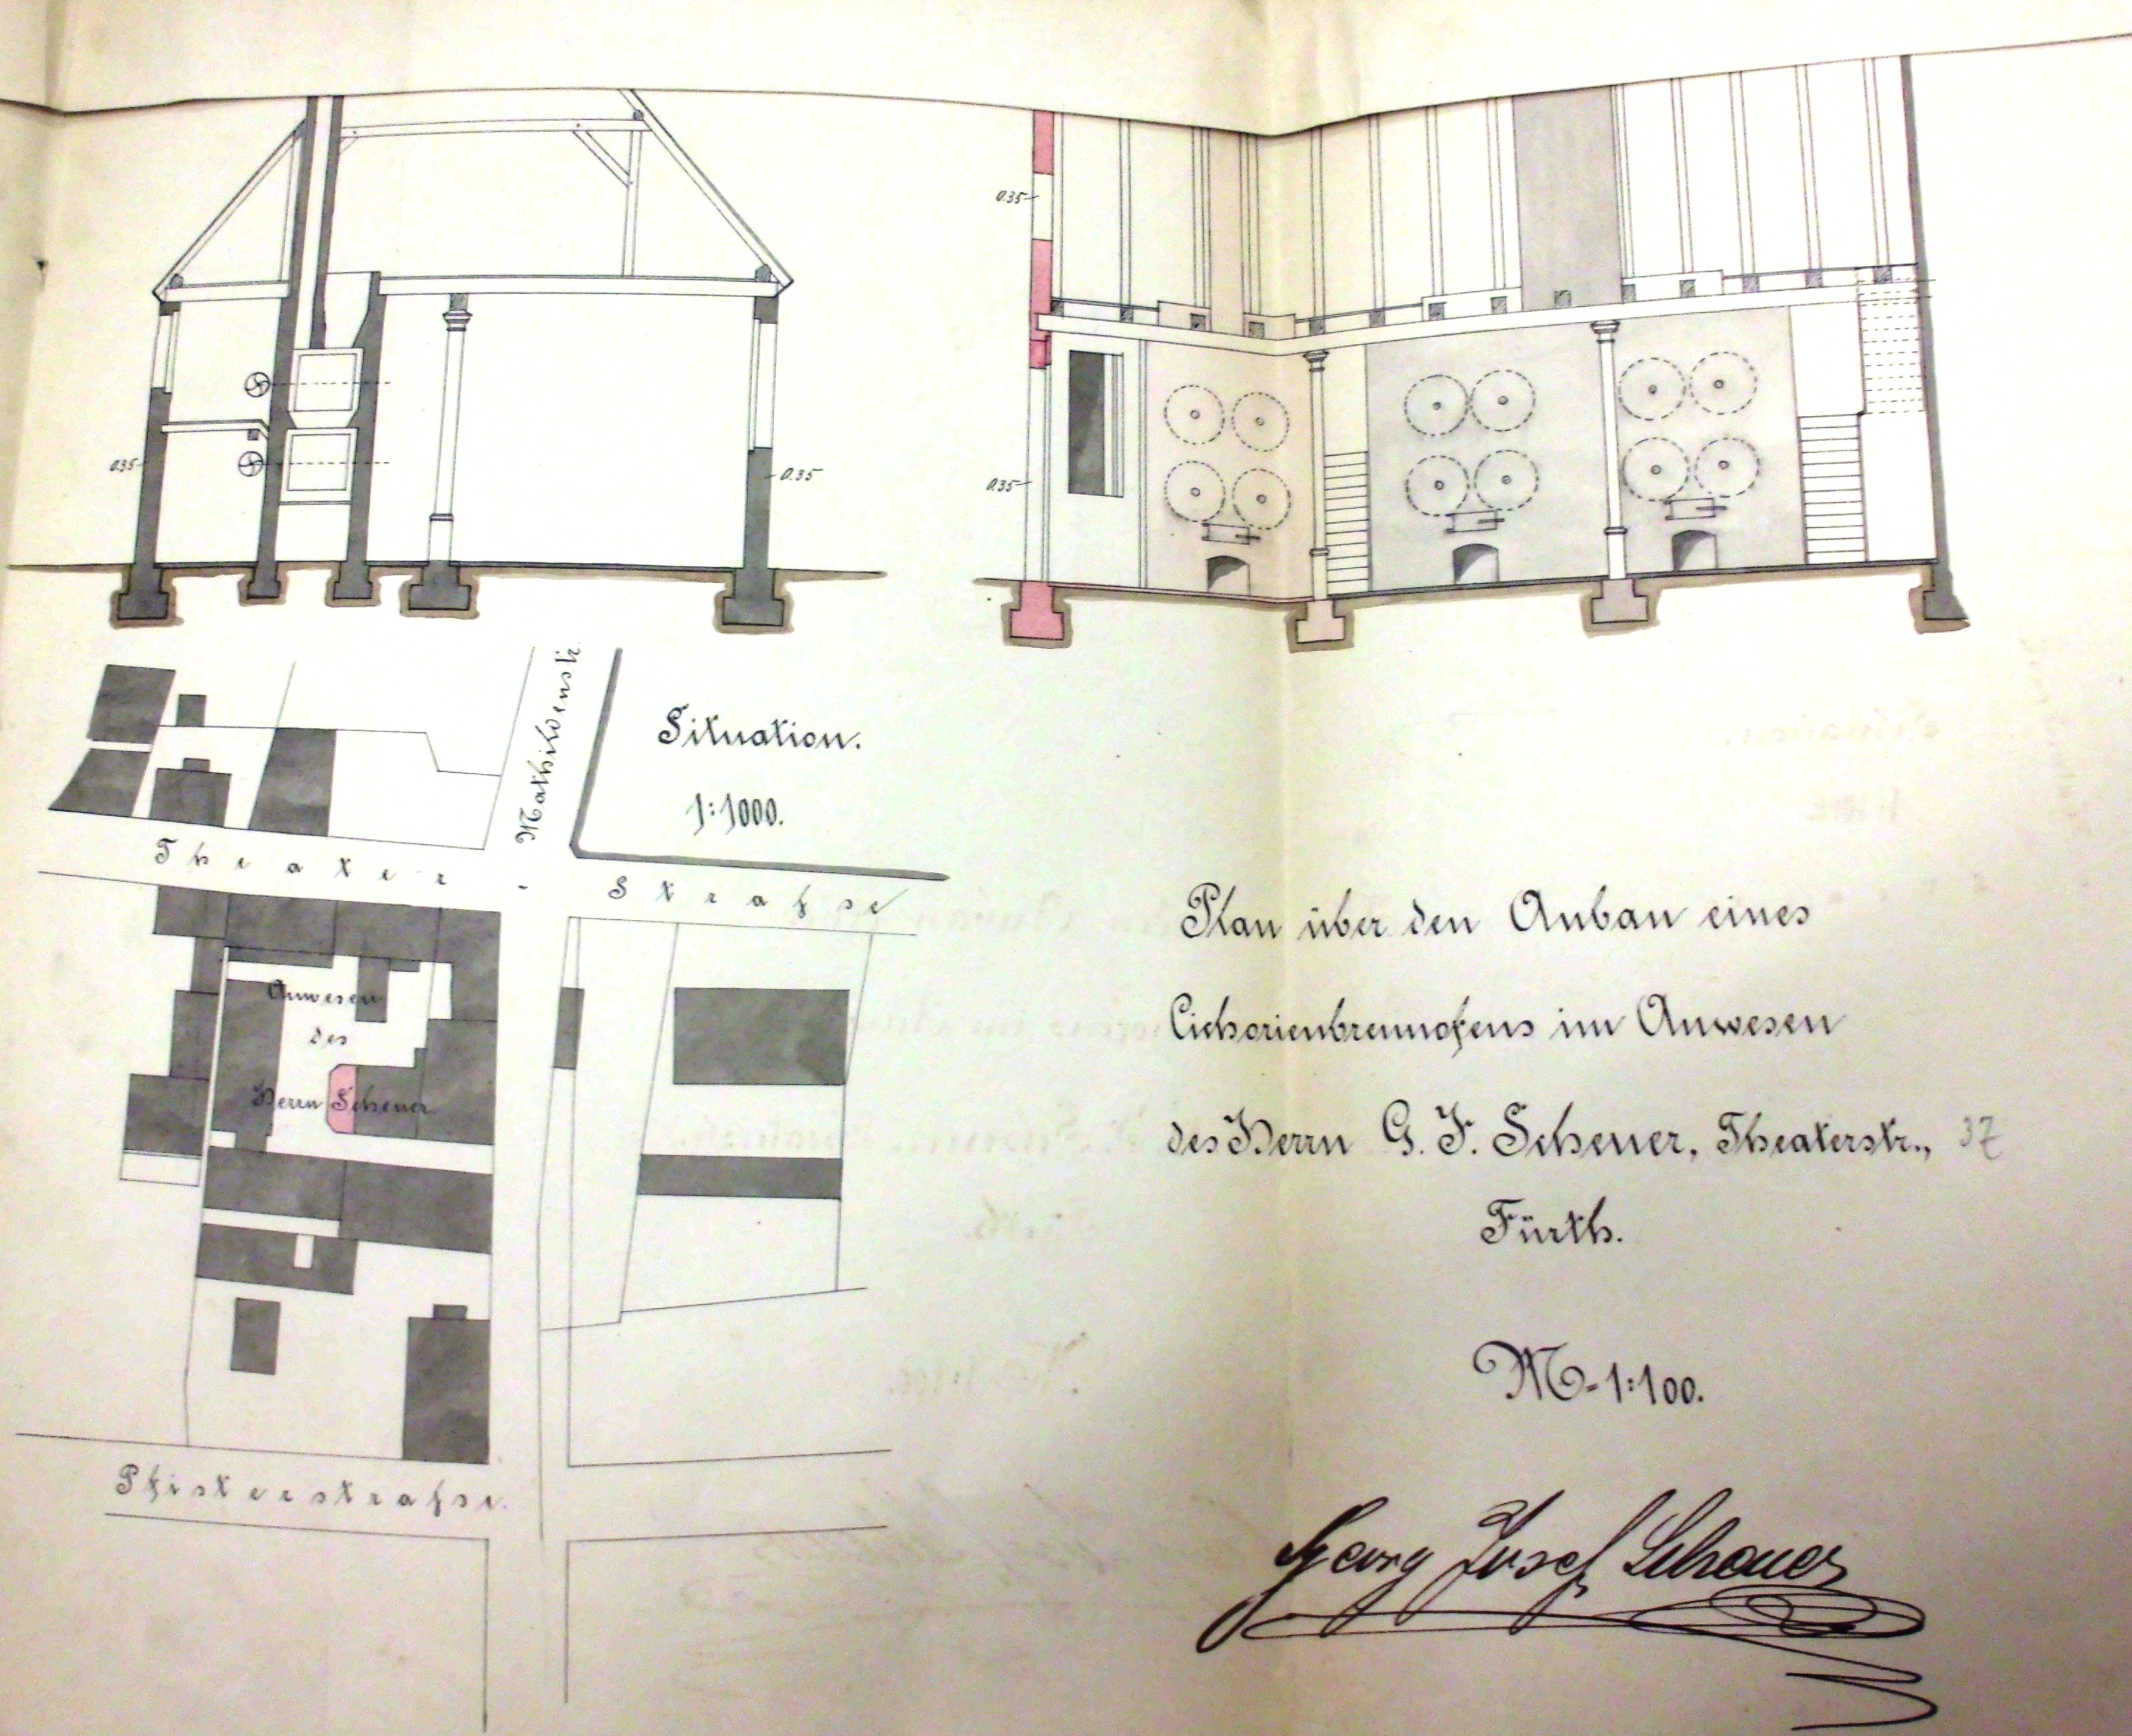 0.35
0.35
0.35
0.35
Mathildenstr.
Situation.
1:1000.
Theater-Strafse
Anwesen
des
Herrn Scheuer
Pfisterstrafse.
Plan über den Anbau eines
Cichorienbrennofens im Anwesen
des Herrn G. J. Scheuer, Theaterstr., 37
Fürth.
M-1:100.
Georg Josef Scheuer